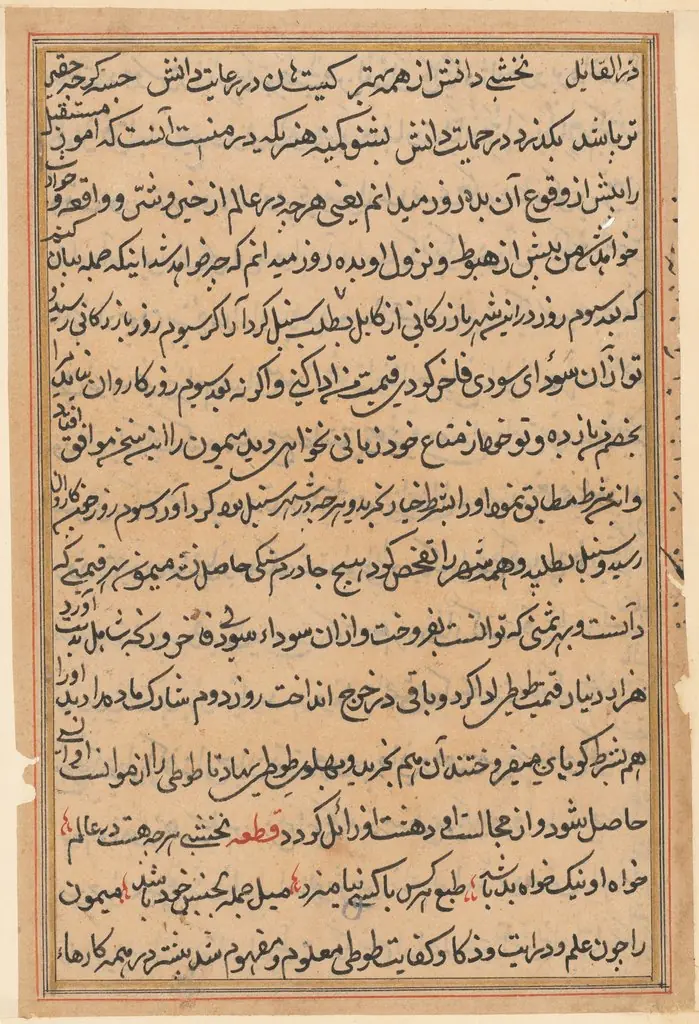 در القابل نخشبے دانش از همه بهتر کیست کان در رعایت دانش خسته گرچه حقیر
تر باشد بگذرد در حمایت دانش بشنو کمینه هنر یکه در منست آنست که امور مستقبل
را پیش از وقوع آن بده روز میدانم یعنی هرچه در عالم از خیر و شر و واقعه و حوادث
خواهد من پیش از هبوط و نزول او بده روز میدانم که چه خواهد شد اینکه جمله بیان کنم
که بعد سیوم روز در این شهر بازرگانی از کابل بطلب سنبل گرد آرا گر سیوم روز بازرگانی رسید و
تو از آن سودای سودی فاخر کردی قیمت من ادا کنے و اگر نه بعد سیوم روز کاروان نیاید مرا
بخصم باز ده و تو خود از متاع خود زیانی نخواهی دید میمون را این سخن موافق افتاد
و این شرط مطابق نمود او را بشرط خیار بخرید و هرچه در شهر سنبل بود گرد آورد سیوم روز چون کاروان
رسید و سنبل بطلبید و همه شهر را تفحص کرد هیچ جا درم سنگی حاصل نشد میمون بهر قیمتے که
دانست و بهر ثمنی که توانست بفروخت و از آن سوداء سودی فاخر و ربحے شامل بدست آورد
هزار دینار قیمت طوطی ادا کرد و باقی در خرج انداخت روز دوم شارک ماده را دید او را
هم بشرط گویایی میفروختند آن هم بخرید و بپهلوی طوطی بنهاد تا طوطی را از موانست او انسی
حاصل شود و از مجالست او دهشت او زائل گردد قطعه نخشبے هرچه هست در عالم
خواه او نیک خواه بد باشد طبع هر کس با کسے نیامیزد میل جمله بجنس خود باشد میمون
را چون علم و درایت و ذکا و کفایت طوطی معلوم و مفهوم شد بیشتر در همه کارهاء